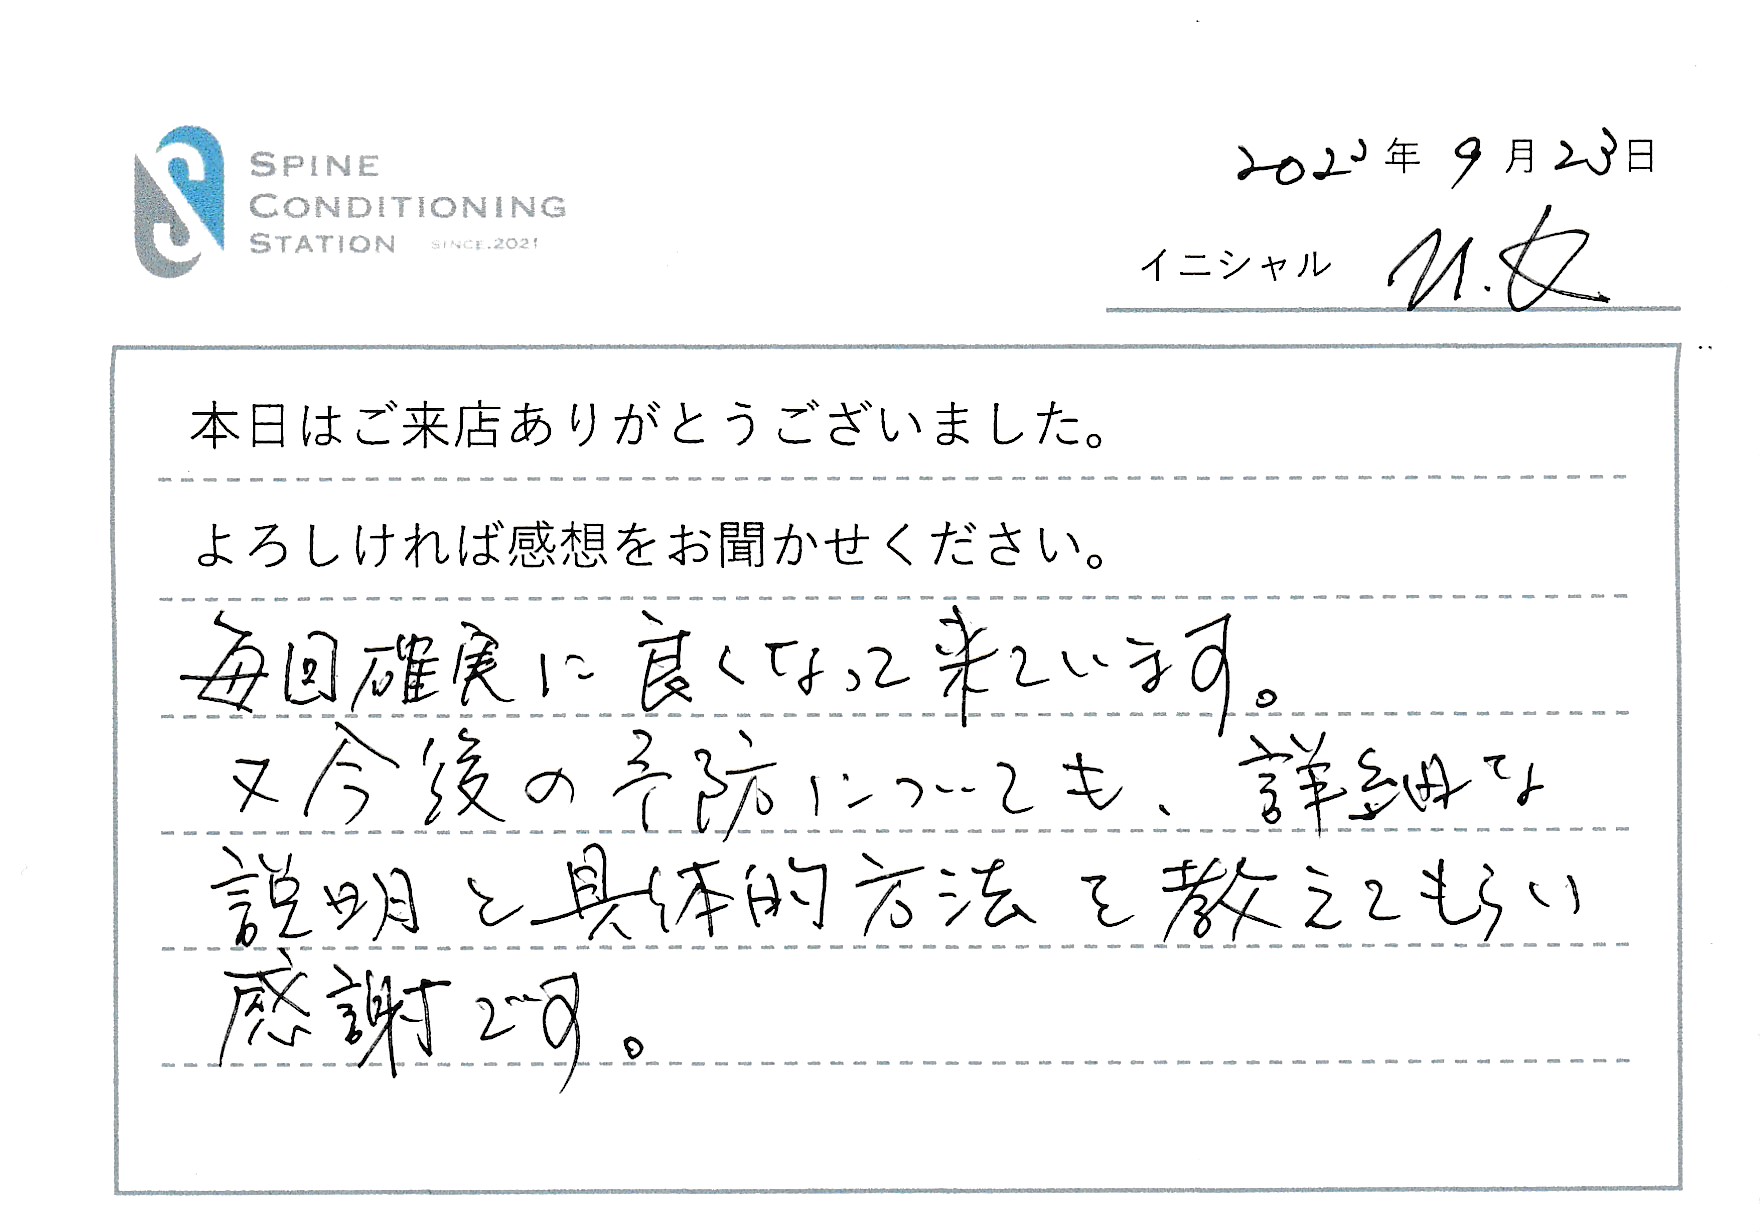 SPINE
CONDITIONING
STATION SINCE.2021
2022年 9月23日
イニシャル
本日はご来店ありがとうございました。
よろしければ感想をお聞かせください。
毎回確実に良くなって来ています。
又今後の予防についても、詳細な
説明と具体的方法を教えてもらい
感謝です。